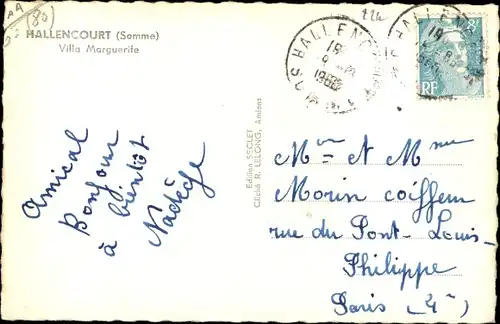 (80)
HALLENCOURT (Somme)
Villa Marguerite
HALLENCOURT
19
RF
Edition SECLET
Cliché R. LELONG, Amiens
Amical
Bonjour
à bientôt
Nadège
Mr et Mme
Morin coiffeur
rue du Pont-Louis-
Philippe
Paris (4e)